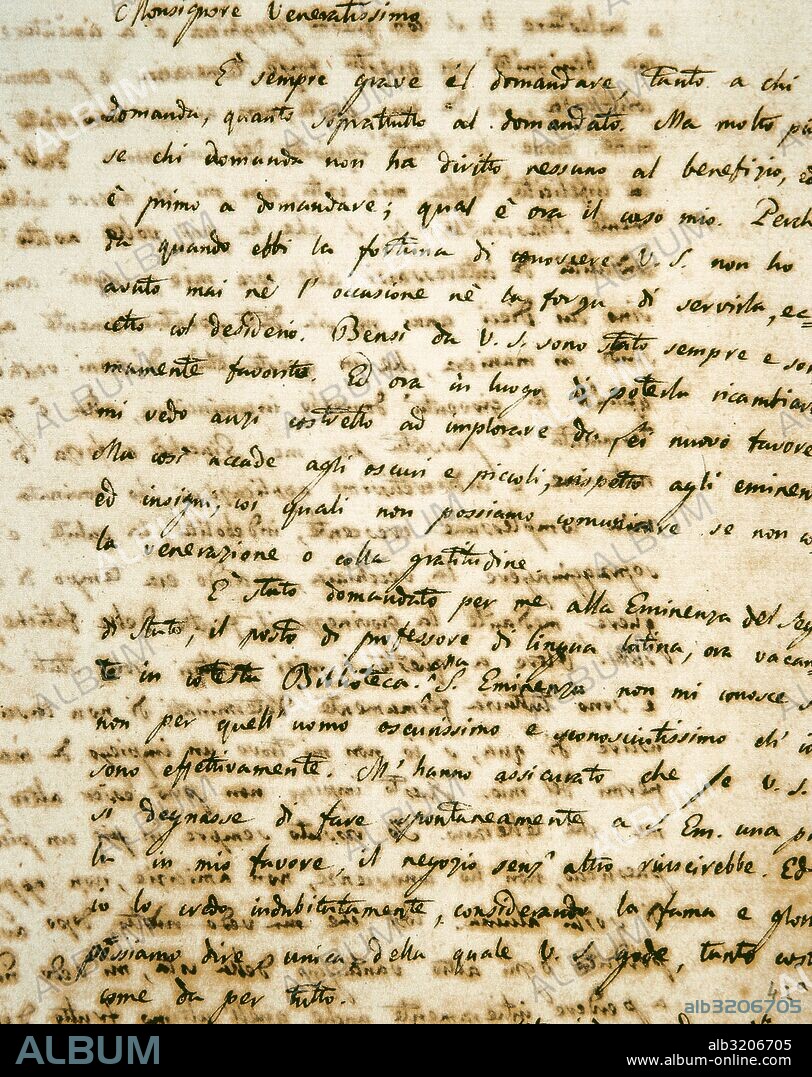 Monsignore Veneratissimo
È sempre grave il domandare, tanto a chi
domanda, quanto sopratutto al domandato. Ma molto pi
se chi domanda non ha diritto nessuno al benefizio, ed
è primo a domandare; qual è ora il caso mio. Perch
da quando ebbi la fortuna di conoscere V. S. non ho
avuto mai nè l'occasione nè la forza di servirla, ec-
cetto col desiderio. Bensì da V. S. sono stato sempre e som
mamente favorito. Ed ora in luogo di poterla ricambiar
mi vedo anzi costretto ad implorare da Lei nuovo favore
Ma così accade agli oscuri e piccoli, rispetto agli eminen
ed insigni, coi quali non possiamo comunicare se non co
la venerazione o colla gratitudine.
È stato domandato per me alla Eminenza del Seg
di Stato, il posto di professore di lingua latina, ora vacan
te in cotesta Biblioteca. S. Eminenza non mi conosce s
non per quell'uomo oscurissimo e sconosciutissimo ch'io
sono effettivamente. M'hanno assicurato che se V. S.
si degnasse di fare spontaneamente a S. Em. una pa
la in mio favore, il negozio senz'altro riuscirebbe. Ed
io lo credo indubitatamente, considerando la fama e glori
possiamo dire unica della quale V. S. gode, tanto costì
come da per tutto.
ALBUM
alb3206705
ALBUM
alb3206705
www.album-online.com